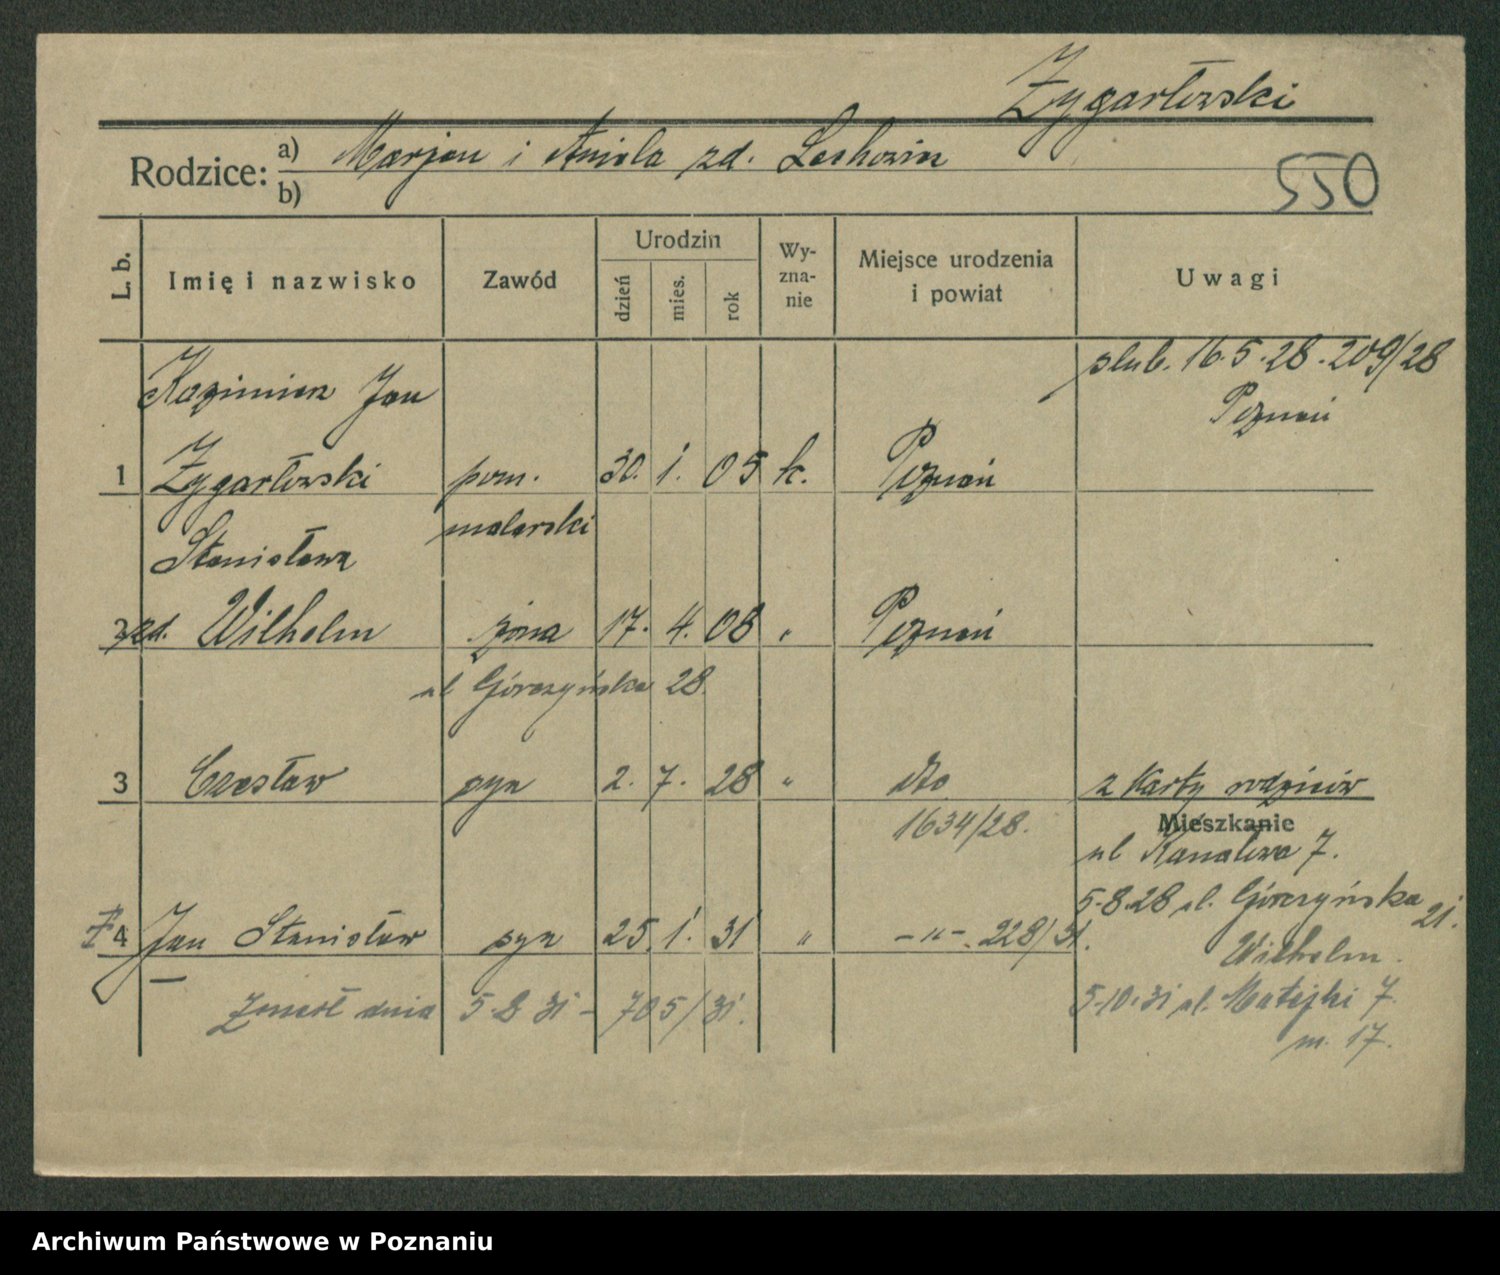 Zygarłowski
Rodzice: a) Marjan i Aniela zd. Lechowicz
b)
550
L. b.
Imię i nazwisko
Zawód
Urodzin
dzień
mies.
rok
Wy-
zna-
nie
Miejsce urodzenia
i powiat
Uwagi
ślub. 16.5.28. 209/28
Poznań
Kazimierz Jan
1 Zygarłowski pom. 30. 1. 05 k. Poznań
malarski
Stanisława
2 zd. Wilhelm żona 17. 4. 08 " Poznań
ul Górczyńska 28.
3 Czesław syn 2. 7. 28 " dto z karty rodziców
1634/28.
Mieszkanie
ul Kanałowa 7.
5.8.28 ul. Górczyńska 21.
Wilhelm.
4 Jan Stanisław syn 25. 1. 31 " -"-. 228/31.
Zmarł dnia 5.8 31 - 705/31.
5.10.31 ul. Matejki 7.
m. 17.